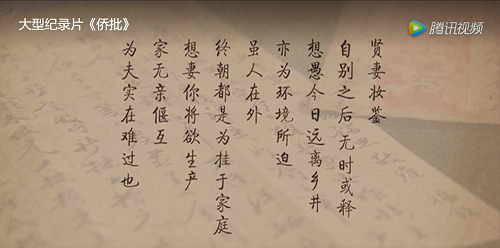 大型纪录片《侨批》
腾讯视频
贤妻妆鉴
自别之后 无时或释
想愚今日远离乡井
亦为环境所迫
虽人在外
终朝都是为挂于家庭
想妻你将欲生产
家无亲偃互
为夫实在难过也